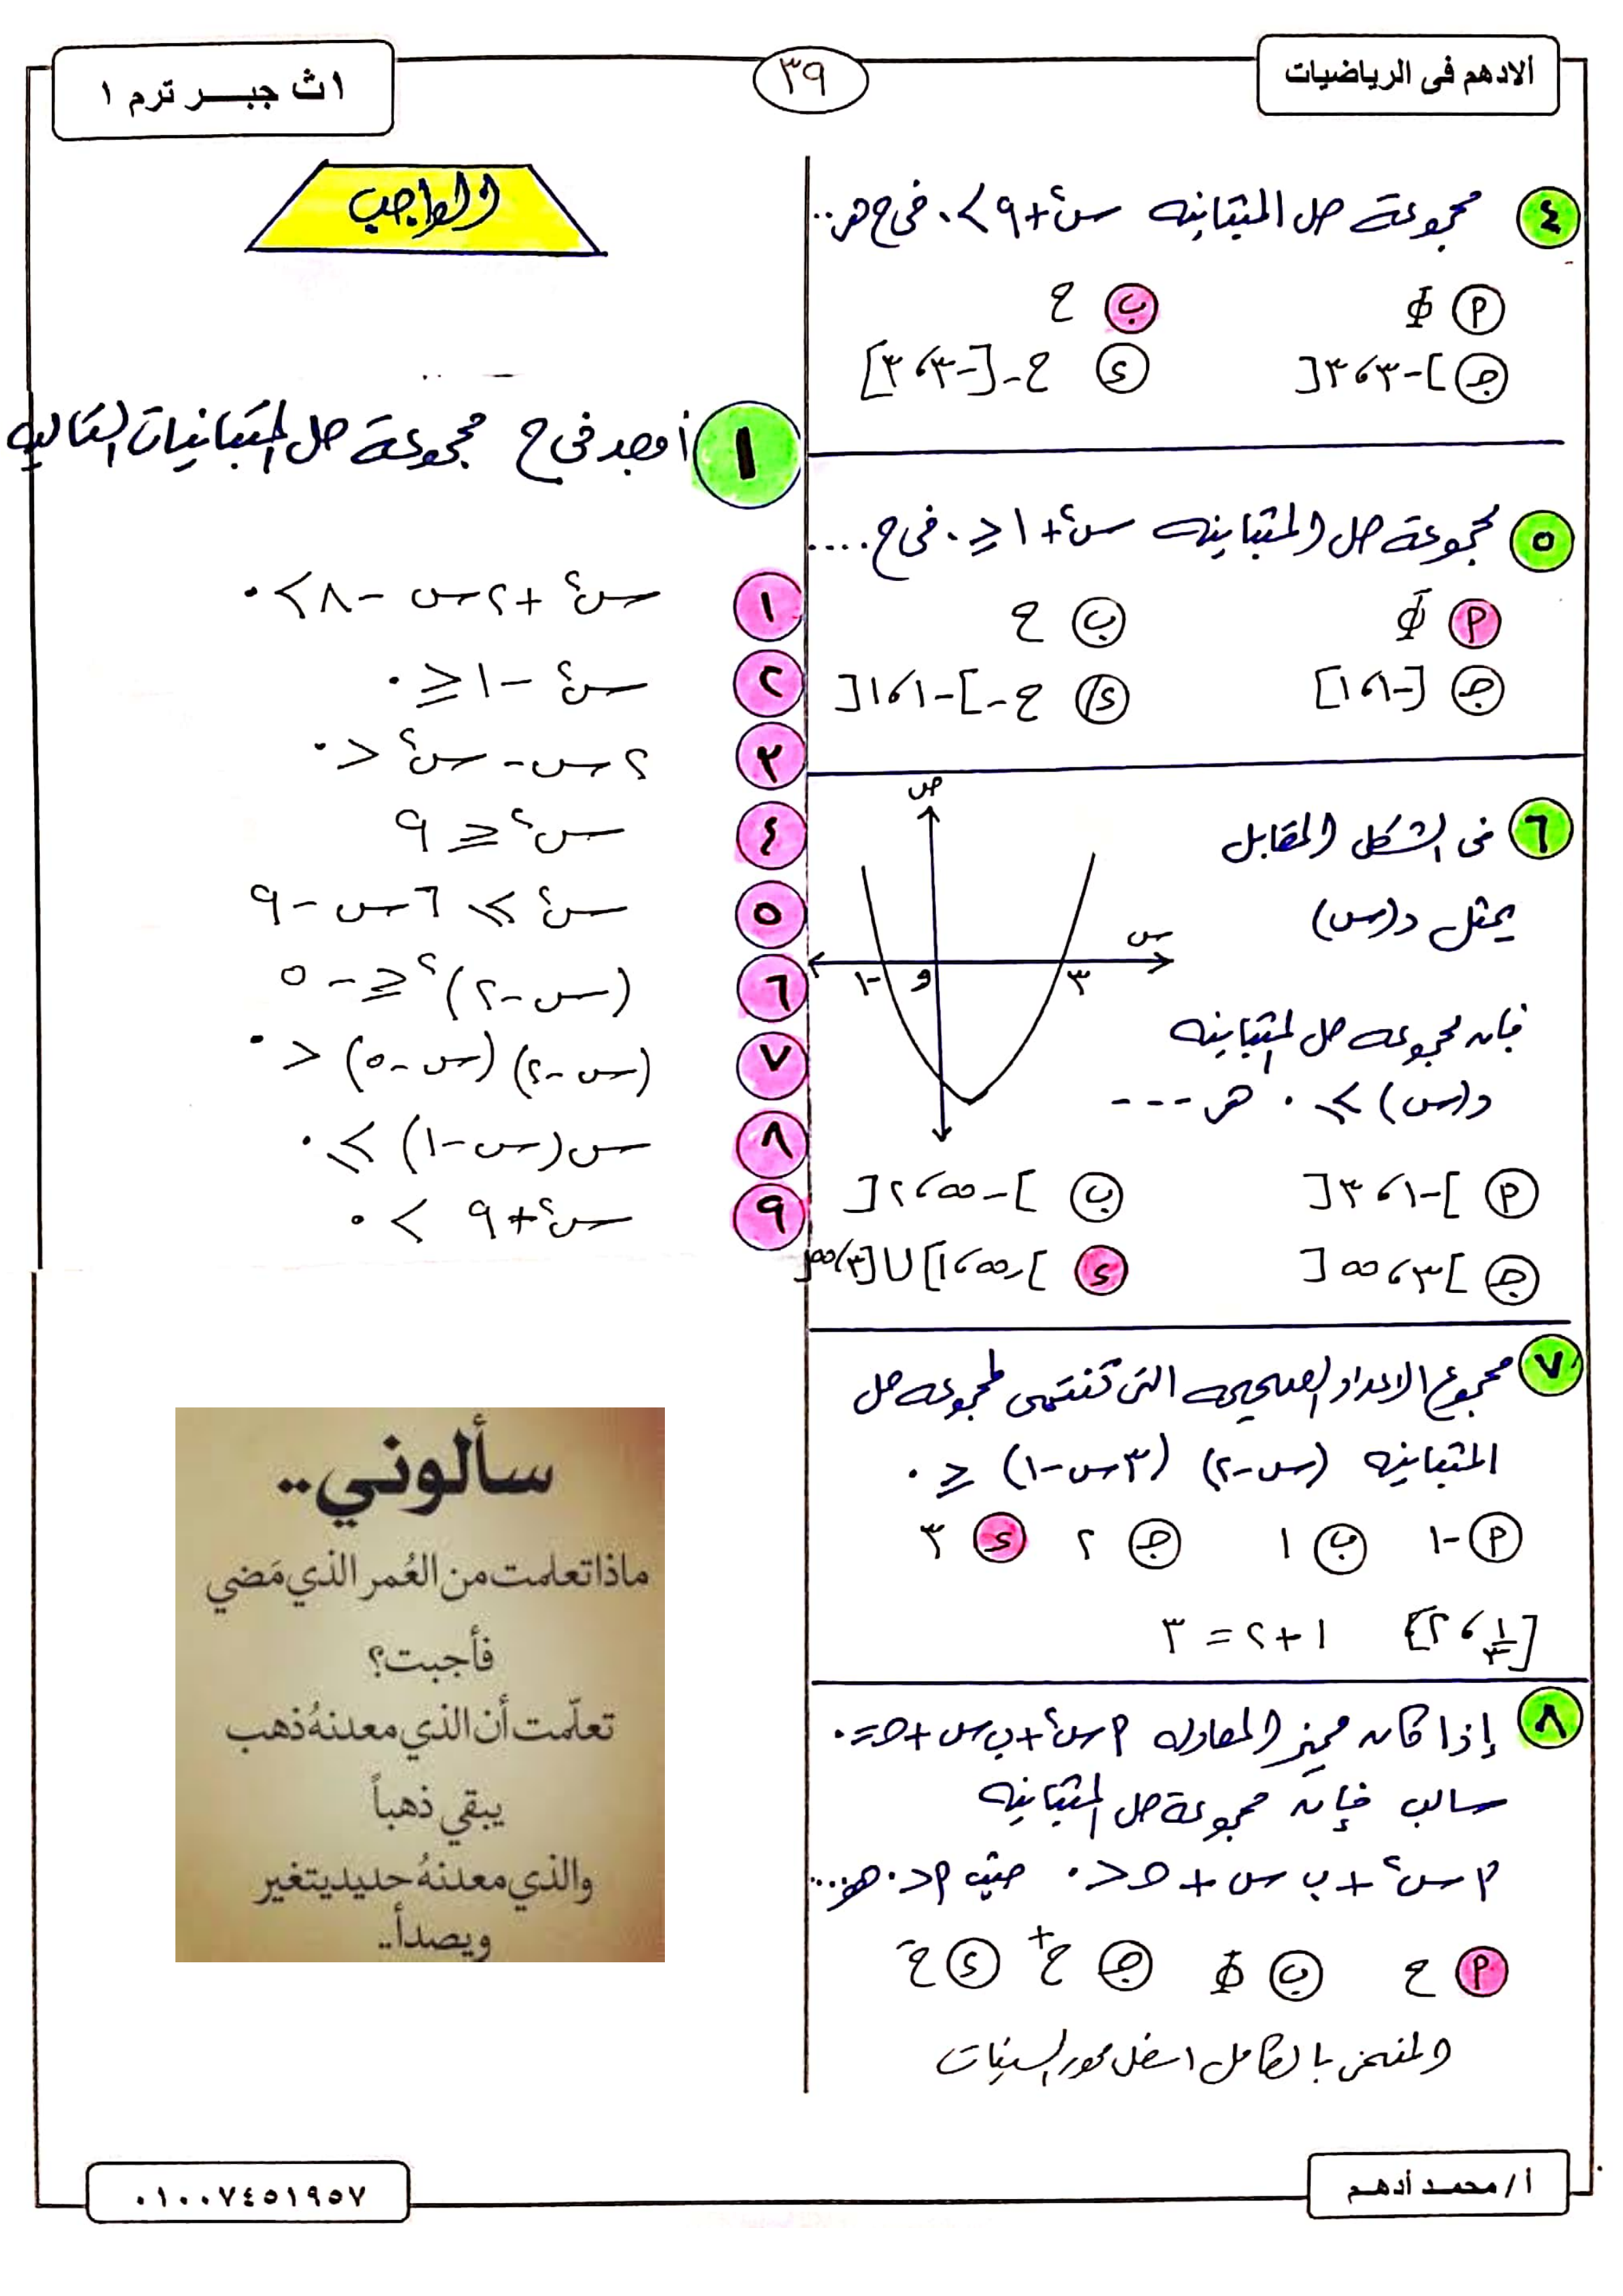 الادهم فى الرياضيات
٣٩
١ث جبــر ترم ١
٤ مجموعة حل المتباينه س٢ + ٩ > ٠ فى ح هى ..
P Φ
ب ح
جـ ]-٣ ، ٣[
د ح - [-٣ ، ٣]
٥ مجموعة حل المتباينه س٢ + ١ ≤ ٠ فى ح ....
P Φ
ب ح
جـ [-١ ، ١]
د ح - ]-١ ، ١[
٦ فى الشكل المقابل
يمثل د(س)
ص
س
-١ و ٣
فإن مجموعه حل المتباينه
د(س) ≥ ٠ هى ---
P ]-١ ، ٣[
ب ]-∞ ، ٢[
جـ ]٣ ، ∞[
د ]-∞ ، ١] ∪ [٣ ، ∞[
٧ مجموع الاعداد الصحيحه التى تنتمى لمجموعه حل
المتباينه (س-٢) (٣س-١) ≤ ٠
P -١
ب ١
جـ ٢
د ٣
[١/٣ ، ٢] ١ + ٢ = ٣
٨ إذا كان مميز المعادله P س٢ + ب س + جـ = ٠
سالب فإن مجموعة حل المتباينه
P س٢ + ب س + جـ < ٠ حيث P < ٠ هو ...
P ح
ب Φ
جـ ح+
د ح-
المنحنى بالكامل اسفل محور السينات
الواجب
١ أوجد فى ح مجموعة حل المتباينات التاليه
١ س٢ + ٢س - ٨ > ٠
٢ س٢ - ١ ≤ ٠
٣ ٢س - س٢ < ٠
٤ س٢ ≤ ٩
٥ س٢ ≥ ٦س - ٩
٦ (س-٢)٢ ≤ -٥
٧ (س-٢) (س-٥) < ٠
٨ س(س-١) ≥ ٠
٩ س٢ + ٩ > ٠
سألوني..
ماذا تعلمت من العُمر الذي مَضي
فأجبت؟
تعلّمت أن الذي معدنهُ ذهب
يبقي ذهباً
والذي معدنهُ حديد يتغير
ويصدأ..
أ / محمـد أدهـم
٠١٠٠٧٤٥١٩٥٧